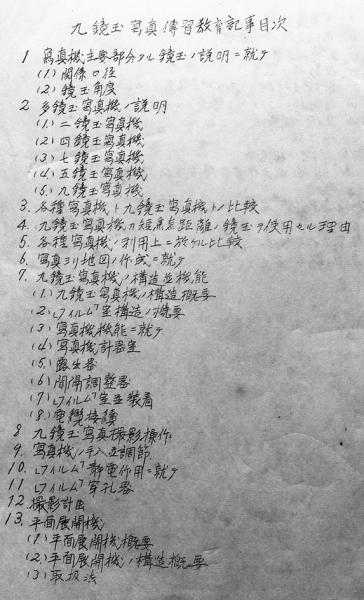 九鏡玉寫真傳習教育記事目次
1 寫真機主要部分タル鏡玉ノ説明ニ就テ
(1) 関係口径
(2) 鏡玉角度
2 多鏡玉寫真機ノ説明
(1) 二鏡玉寫真機
(2) 四鏡玉寫真機
(3) 七鏡玉寫真機
(4) 五鏡玉寫真機
(5) 九鏡玉寫真機
3. 各種寫真機ト九鏡玉寫真機トノ比較
4. 九鏡玉寫真機ガ短焦点距離ノ鏡玉ヲ使用セル理由
5. 各種寫真機ノ利用上ニ於ケル比較
6. 寫真ヨリ地図ノ作成ニ就テ
7. 九鏡玉寫真機ノ構造並機能
(1) 九鏡玉寫真機ノ構造概要
(2) 「フィルム」室構造ノ概要
(3) 寫真機機能ニ就テ
(4) 寫真機計器室
(5) 露出器
(6) 間隔調整器
(7) 「フィルム」室並装着
(8) 電纜接續
8 九鏡玉寫真撮影操作
9. 寫真機ノ手入並調節
10. 「フィルム」静電作用ニ就テ
11 「フィルム」穿孔器
12. 撮影計画
13. 平面展開機
(1) 平面展開機概要
(2) 平面展開機ノ構造概要
(3) 取扱法